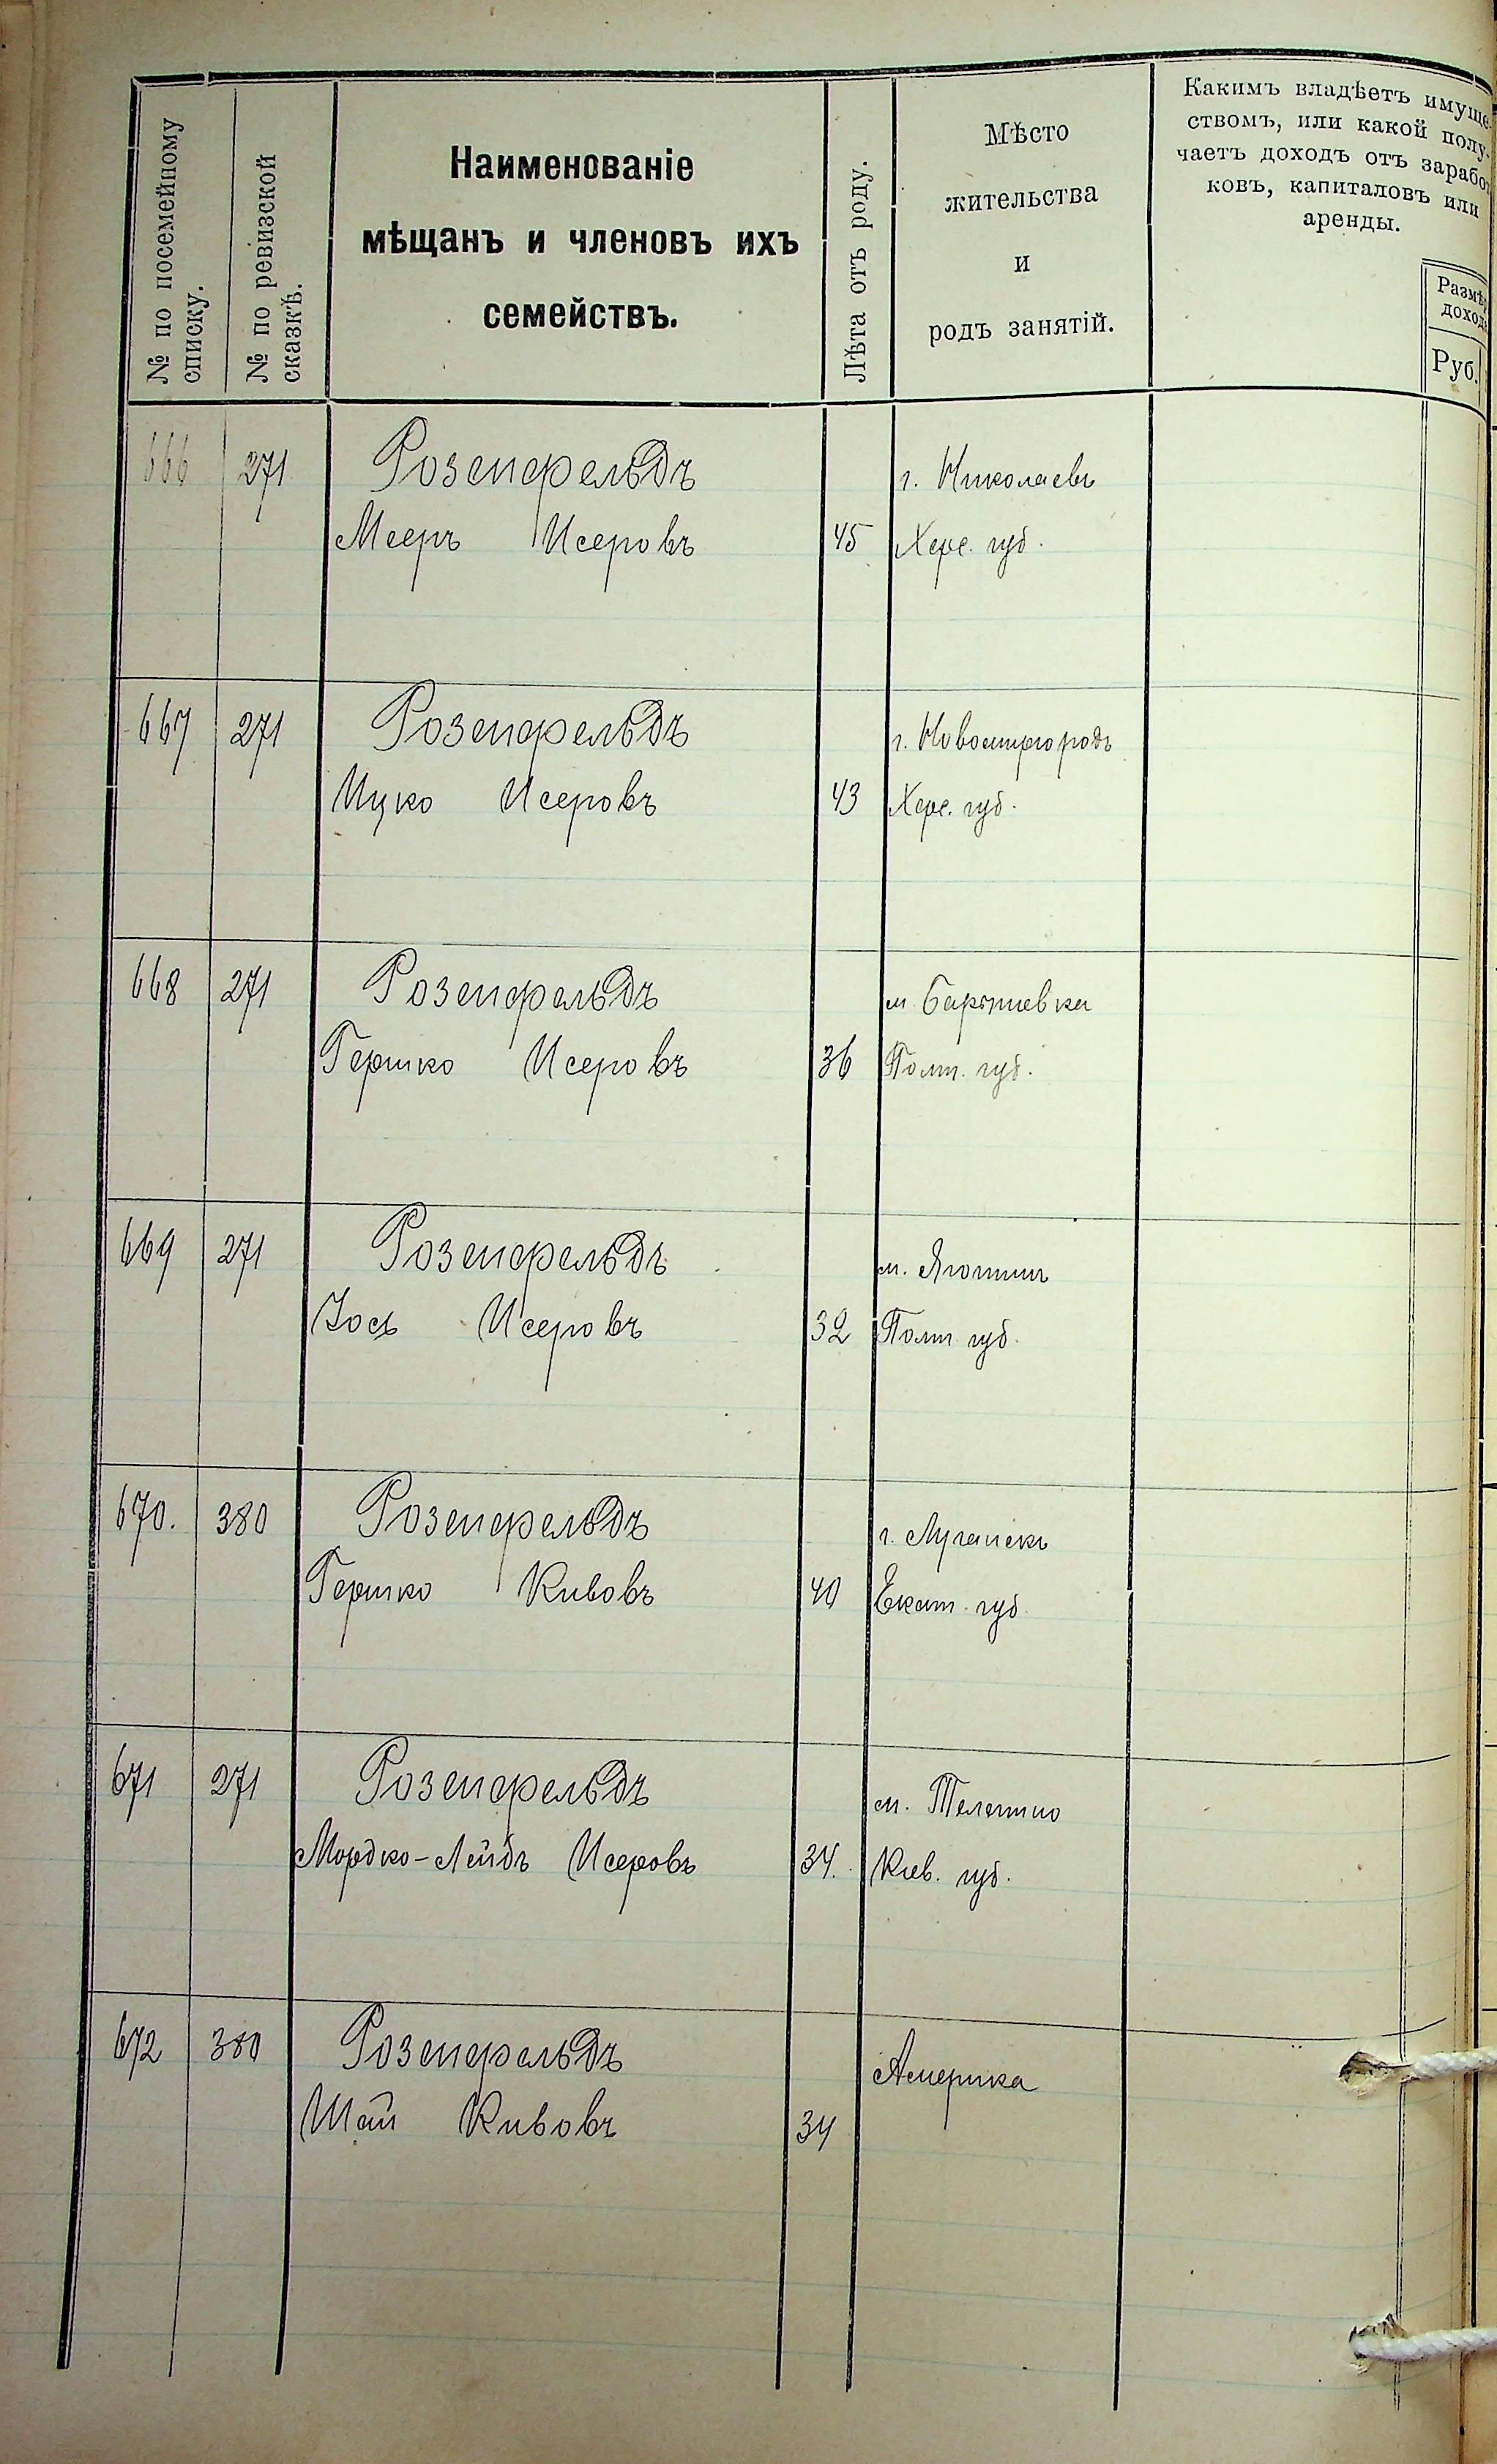 № по посемейному
списку.
№ по ревизской
сказкѣ.
Наименованіе
мѣщанъ и членовъ ихъ
семействъ.
Лѣта отъ роду.
Мѣсто
жительства
и
родъ занятій.
Какимъ владѣетъ имуще-
ствомъ, или какой полу-
чаетъ доходъ отъ заработ
ковъ, капиталовъ или
аренды.
Размѣ
доход
Руб.
666 271 Розенфельдъ г. Николаевъ
Мееръ Исеровъ 45 Херс. губ.
667 271 Розенфельдъ г. Новомиргородъ
Ицко Исеровъ 43 Херс. губ.
668 271 Розенфельдъ м. Барышевка
Гершко Исеровъ 36 Полт. губ.
669 271 Розенфельдъ м. Яготинъ
Іось Исеровъ 32 Полт. губ.
670. 380 Розенфельдъ г. Луганскъ
Гершко Кивовъ 40 Екат. губ.
671 271 Розенфельдъ м. Телепино
Мордко-Лейбъ Исеровъ 34. Кіев. губ.
672 380 Розенфельдъ Америка
Шай Кивовъ 34